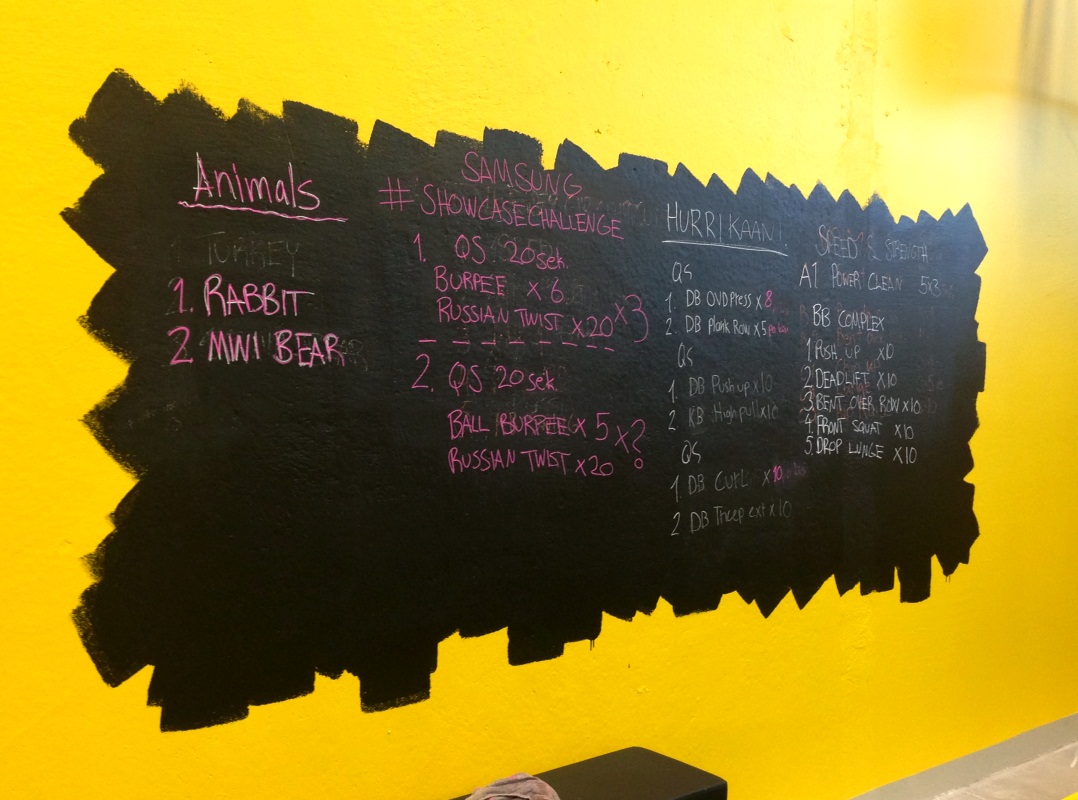 Animals
TURKEY
1. RABBIT
2 MINI BEAR
SAMSUNG
#SHOWCASECHALLENGE
1. QS 20sek.
BURPEE x 6
RUSSIAN TWIST x20 x3
2. QS 20sek.
BALL BURPEE x 5 x?
RUSSIAN TWIST x20
HURRIKAAN!
QS
1. DB OVD Press x 8
2. DB Plank Row x 5
QS
1. DB Push up x 10
2. KB High pull x10
QS
1. DB Curl x 10
2 DB Tricep ext x 10
SPEED & STRENGTH
A1 POWER CLEAN 5x3
BB COMPLEX
1 PUSH UP x10
2 DEADLIFT x10
3. BENT OVER ROW x10
4. FRONT SQUAT x10
5, DROP LUNGE x10